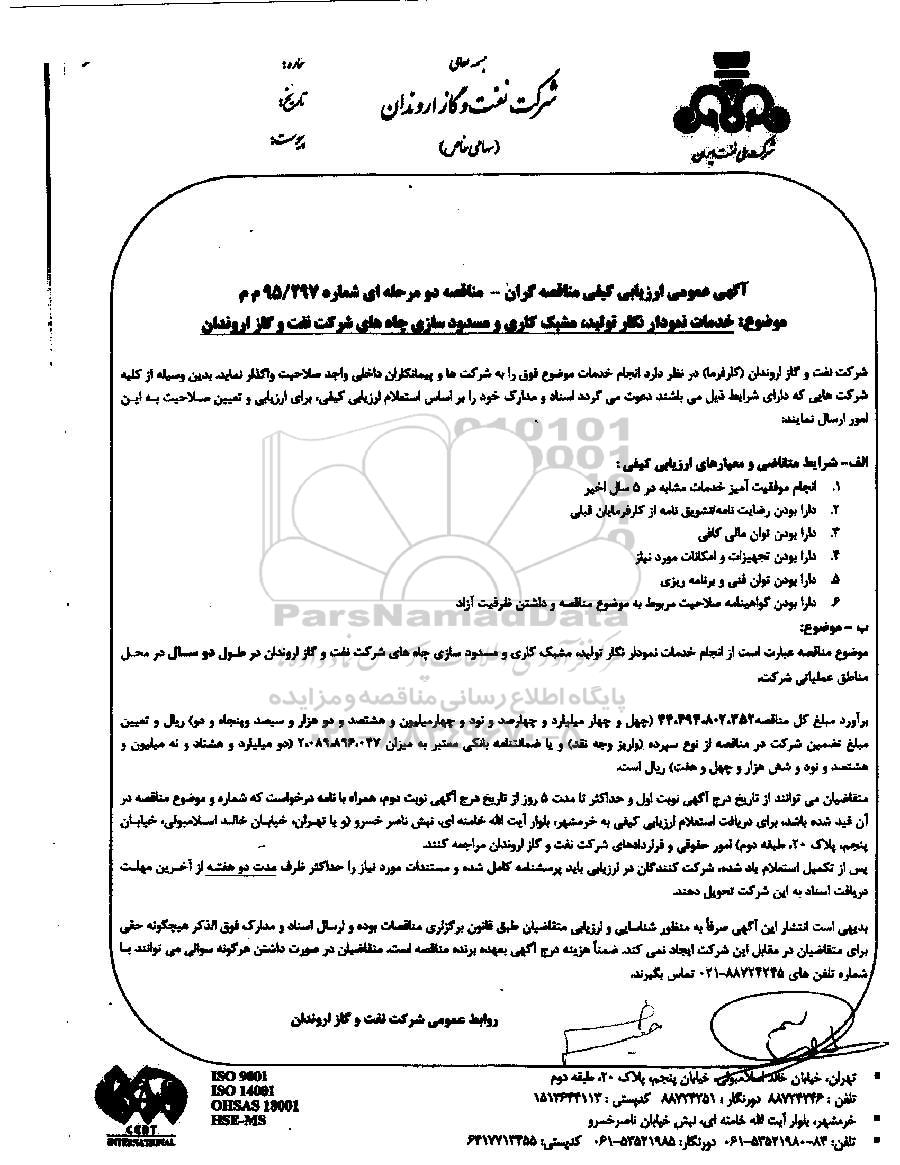 بسمه تعالی
شرکت نفت و گاز اروندان
(سهامی خاص)
شماره:
تاریخ:
پیوست:
شرکت ملی نفت ایران
آگهی عمومی ارزیابی کیفی مناقصه گران - مناقصه دو مرحله ای شماره ۹۵/۲۹۷ م م
موضوع: خدمات نمودار نگار تولید، مشبک کاری و مسدود سازی چاه های شرکت نفت و گاز اروندان
شرکت نفت و گاز اروندان (کارفرما) در نظر دارد انجام خدمات موضوع فوق را به شرکت ها و پیمانکاران داخلی واجد صلاحیت واگذار نماید. بدین وسیله از کلیه
شرکت هایی که دارای شرایط ذیل می باشند دعوت می گردد اسناد و مدارک خود را بر اساس استعلام ارزیابی کیفی، برای ارزیابی و تعیین صلاحیت به این
امور ارسال نمایند:
الف- شرایط متقاضی و معیارهای ارزیابی کیفی :
۱. انجام موفقیت آمیز خدمات مشابه در ۵ سال اخیر
۲. دارا بودن رضایت نامه/تشویق نامه از کارفرمایان قبلی
۳. دارا بودن توان مالی کافی
۴. دارا بودن تجهیزات و امکانات مورد نیاز
۵. دارا بودن توان فنی و برنامه ریزی
۶. دارا بودن گواهینامه صلاحیت مربوط به موضوع مناقصه و داشتن ظرفیت آزاد
ParsNamadData
ب - موضوع:
موضوع مناقصه عبارت است از انجام خدمات نمودار نگار تولید، مشبک کاری و مسدود سازی چاه های شرکت نفت و گاز اروندان در طول دو سال در محل
مناطق عملیاتی شرکت.
پایگاه اطلاع رسانی مناقصه و مزایده
برآورد مبلغ کل مناقصه ۴۴،۴۹۴،۸۰۲،۳۵۲ (چهل و چهار میلیارد و چهارصد و نود و چهارمیلیون و هشتصد و دو هزار و سیصد وپنجاه و دو) ریال و تعیین
مبلغ تضمین شرکت در مناقصه از نوع سپرده (واریز وجه نقد) و یا ضمانتنامه بانکی معتبر به میزان ۲،۰۸۹،۸۹۶،۰۴۷ (دو میلیارد و هشتاد و نه میلیون و
هشتصد و نود و شش هزار و چهل و هفت) ریال است.
۰۲۱-۸۸۳۴۹۶۷۰-۸
متقاضیان می توانند از تاریخ درج آگهی نوبت اول و حداکثر تا مدت ۵ روز از تاریخ درج آگهی نوبت دوم، همراه با نامه درخواست که شماره و موضوع مناقصه در
آن قید شده باشد، برای دریافت استعلام ارزیابی کیفی به خرمشهر، بلوار آیت الله خامنه ای، نبش ناصر خسرو (و یا تهران، خیابان خالد اسلامبولی، خیابان
پنجم، پلاک ۲۰، طبقه دوم) امور حقوقی و قراردادهای شرکت نفت و گاز اروندان مراجعه کنند.
پس از تکمیل استعلام یاد شده، شرکت کنندگان در ارزیابی باید پرسشنامه کامل شده و مستندات مورد نیاز را حداکثر ظرف مدت دو هفته از آخرین مهلت
دریافت اسناد به این شرکت تحویل دهند.
بدیهی است انتشار این آگهی صرفاً به منظور شناسایی و ارزیابی متقاضیان طبق قانون برگزاری مناقصات بوده و ارسال اسناد و مدارک فوق الذکر هیچگونه حقی
برای متقاضیان در مقابل این شرکت ایجاد نمی کند. ضمناً هزینه درج آگهی بعهده برنده مناقصه است. متقاضیان در صورت داشتن هرگونه سوالی می توانند با
شماره تلفن های ۸۸۷۲۴۲۴۵-۰۲۱ تماس بگیرند.
روابط عمومی شرکت نفت و گاز اروندان
تهران، خیابان خالد اسلامبولی، خیابان پنجم، پلاک ۲۰، طبقه دوم
تلفن : ۸۸۷۲۴۲۴۶ دورنگار : ۸۸۷۲۴۲۵۱ کدپستی : ۱۵۱۳۶۴۴۱۱۳
خرمشهر، بلوار آیت الله خامنه ای، نبش خیابان ناصرخسرو
تلفن: ۸۴-۰۶۱-۵۳۵۲۱۹۸۰ دورنگار: ۰۶۱-۵۳۵۲۱۹۸۵ کدپستی: ۶۴۱۷۷۱۳۴۵۵
ISO 9001
ISO 14001
OHSAS 18001
HSE-MS
CERT
INTERNATIONAL